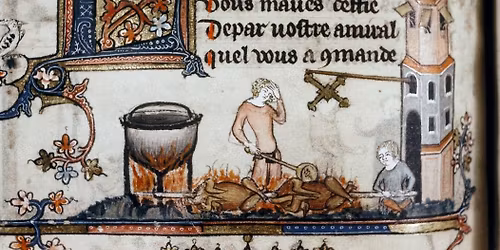 Vous maues cestie
Depar uostre amiral
quel vous a 9mande